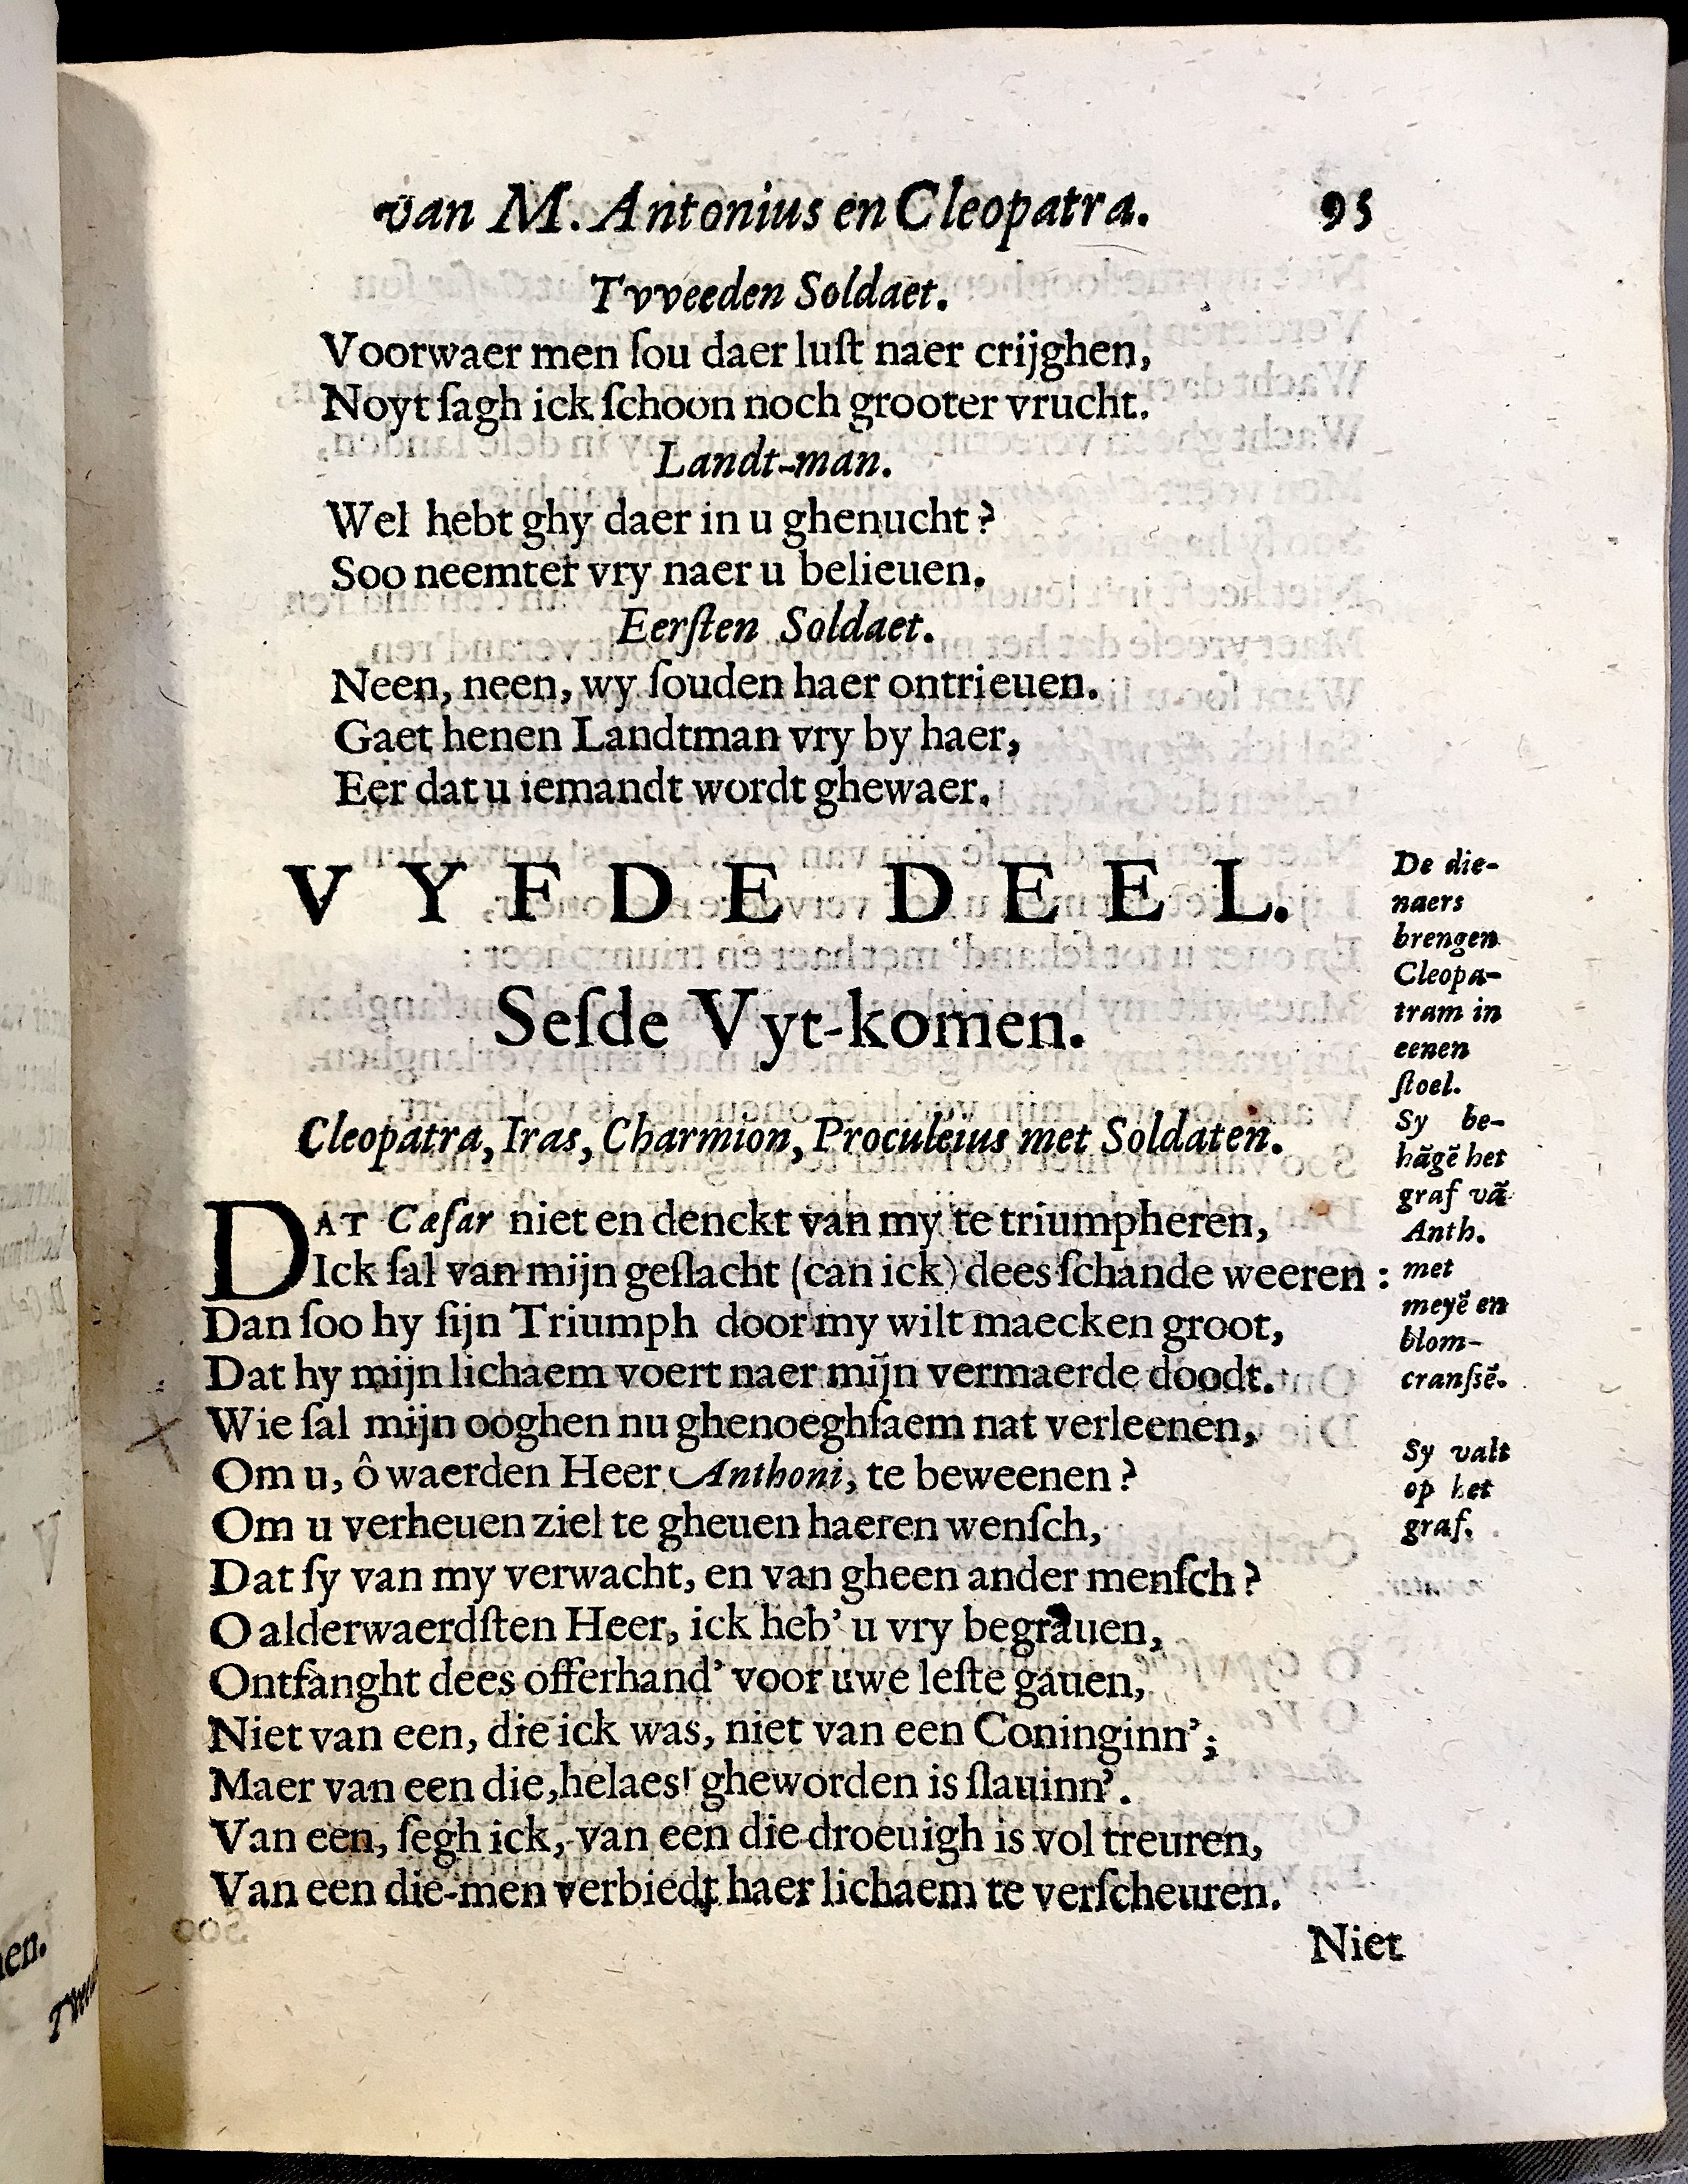 van M. Antonius en Cleopatra. 95
Tvveeden Soldaet.
Voorwaer men ſou daer luſt naer crijghen,
Noyt ſagh ick ſchoon noch grooter vrucht.
Landt-man.
Wel hebt ghy daer in u ghenucht?
Soo neemter vry naer u belieuen.
Eerſten Soldaet.
Neen, neen, wy ſouden haer ontrieuen.
Gaet henen Landtman vry by haer,
Eer dat u iemandt wordt ghewaer.
VYFDE DEEL.
Seſde Vyt-komen.
Cleopatra, Iras, Charmion, Proculeius met Soldaten.
DAT Cæſar niet en denckt van my te triumpheren,
Ick ſal van mijn geſlacht (can ick) dees ſchande weeren:
Dan ſoo hy ſijn Triumph door my wilt maecken groot,
Dat hy mijn lichaem voert naer mijn vermaerde doodt.
Wie ſal mijn ooghen nu ghenoeghſaem nat verleenen,
Om u, ô waerden Heer Anthoni, te beweenen?
Om u verheuen ziel te gheuen haeren wenſch,
Dat ſy van my verwacht, en van gheen ander menſch?
O alderwaerdſten Heer, ick heb' u vry begrauen,
Ontfanght dees offerhand' voor uwe leſte gauen,
Niet van een, die ick was, niet van een Coninginn';
Maer van een die, helaes! gheworden is ſlauinn'.
Van een, ſegh ick, van een die droeuigh is vol treuren,
Van een die-men verbiedt haer lichaem te verſcheuren.
Niet
De die-
naers
brengen
Cleopa-
tram in
eenen
ſtoel.
Sy be-
hãgẽ het
graf vã
Anth.
met
meyẽ en
blom-
cranſẽ.
Sy valt
op het
graf.